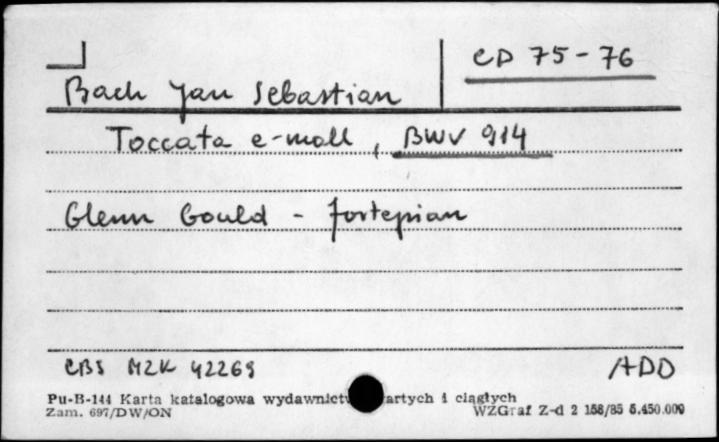 CD 75-76
Bach Jan Sebastian
Toccata e-moll, BWV 914
Glenn Gould - fortepian
CBS M2K 42269 ADD
Pu-B-144 Karta katalogowa wydawnictw zwartych i ciągłych
Zam. 697/DW/ON WZGraf Z-d 2 158/85 5.450.000